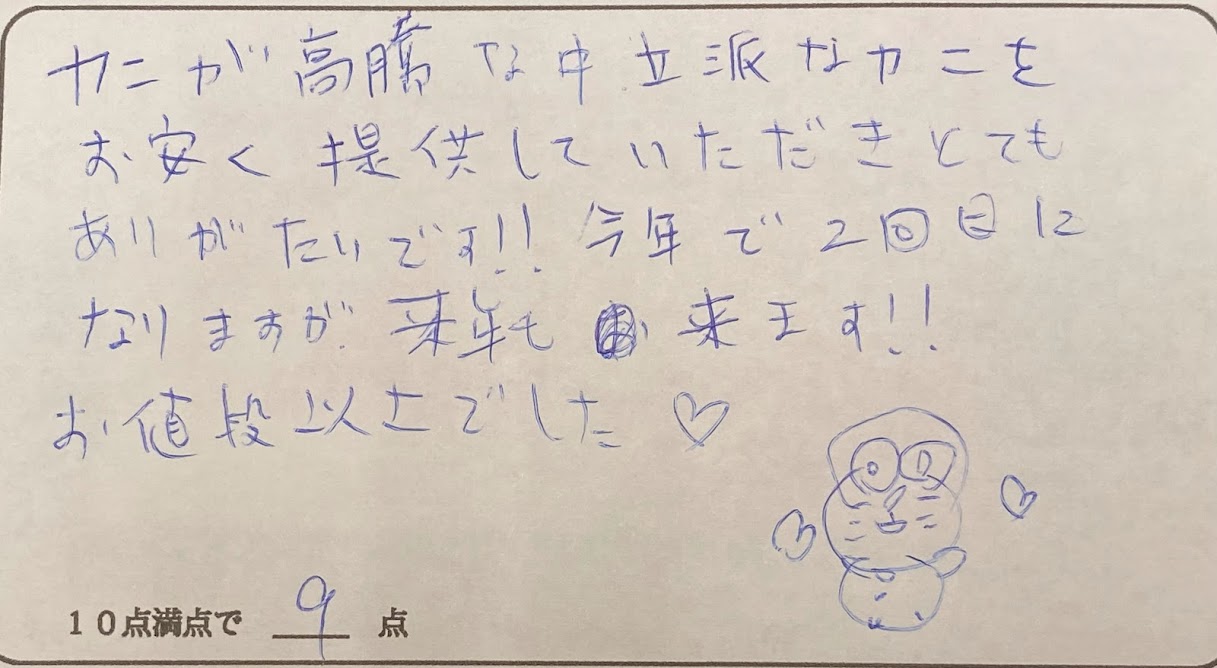 カニが高騰な中立派なカニを
お安く提供していただきとても
ありがたいです!! 今年で2回目に
なりますが 来年も 来ます!!
お値段以上でした♡
10点満点で 9 点